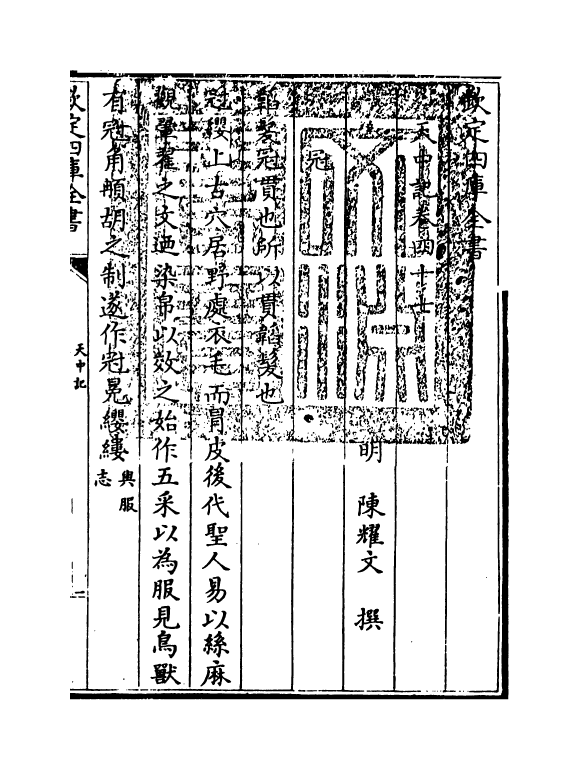 欽定四庫全書
天中記卷四十七
明 陳耀文 撰
冠
韜髮冠貫也所以貫韜髮也
冠纓上古穴居野處衣毛而冐皮後代聖人易以絲麻
觀翬翟之文迺染帛以效之始作五采以為服見鳥獸
有冠角䫇胡之制遂作冠冕纓緌 輿服志
欽定四庫全書
天中記